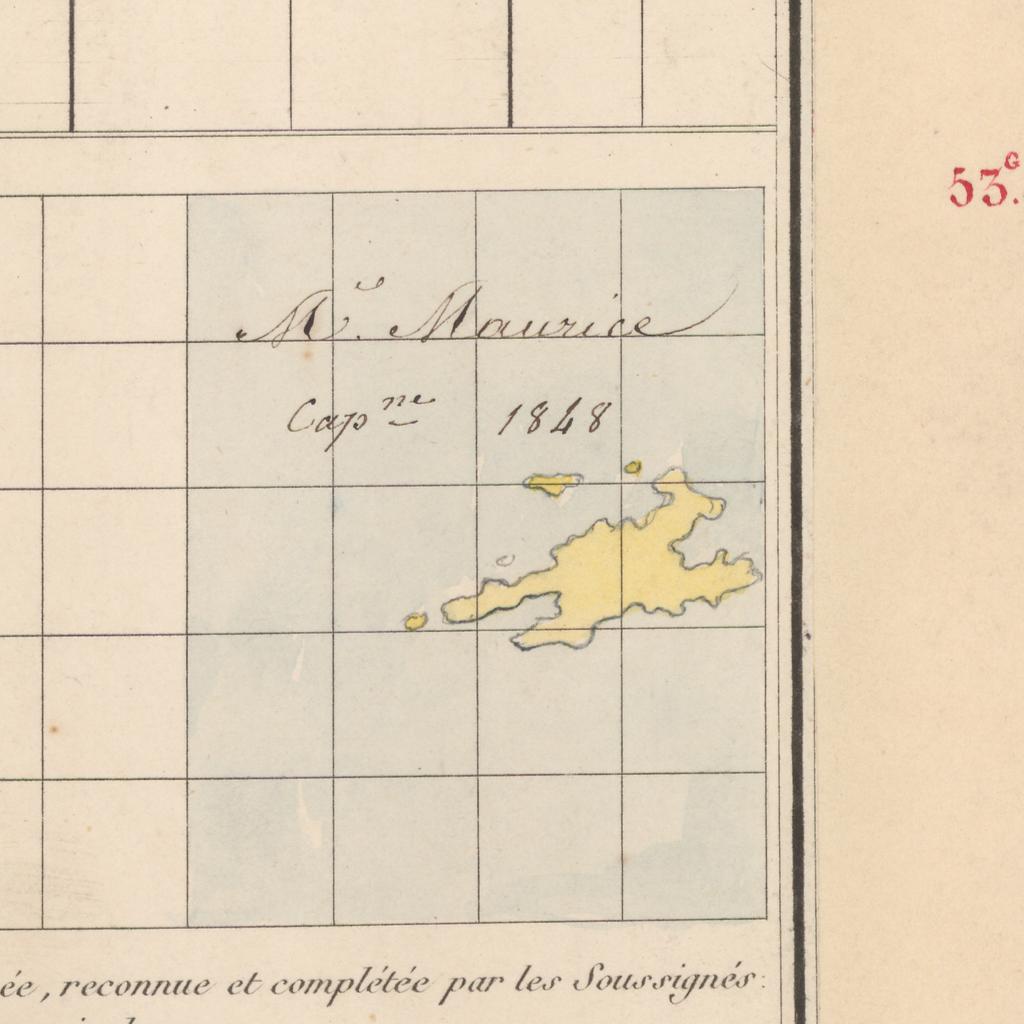 53.G
Mr. Maurice
Capne 1848
ée, reconnue et complétée par les Soussignés: